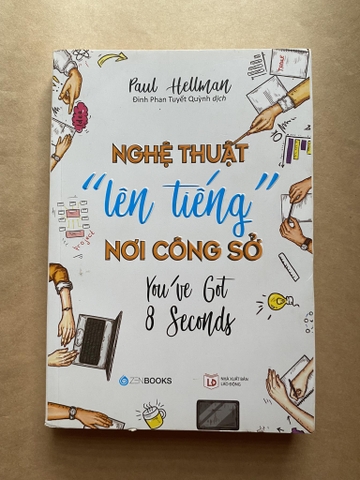 Paul Hellman
Đinh Phan Tuyết Quỳnh dịch
NGHỆ THUẬT
"lên tiếng"
NƠI CÔNG SỞ
You've Got
8 Seconds
ZENBOOKS
NHÀ XUẤT BẢN
LAO ĐỘNG
idea
Project